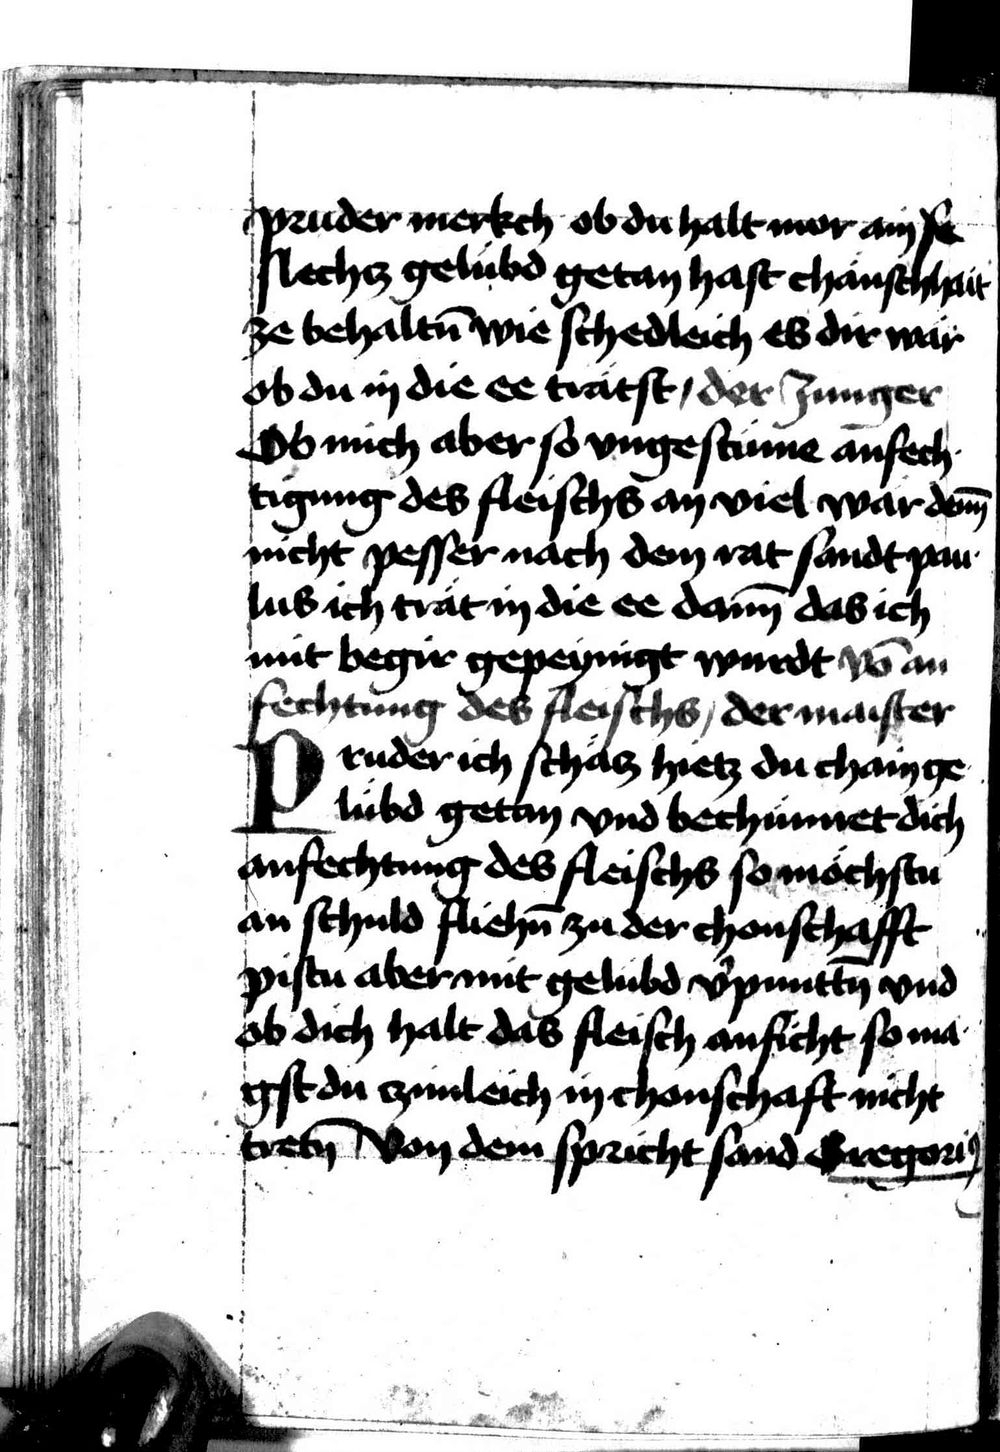 pruder merkch ob du halt mor ain se
slechz gelübd getan hast chäuschhait
ze behaltn̄ wie schedleich es dir wär
ob du in die ee trätst / der Junger
Ob mich aber so vngestüme anfech
tigung des fleischs an viel wär denn̄
nicht pesser nach dem rat sandt pau
lus ich trät in die ee dann̄ das ich
mit begir gepeynigt wurdt vō an
fechtung des fleischs / der maister
Pruder ich schäcz hietz du chain ge
lübd getan vnd bechümret dich
anfechtung des fleischs so möchstu
an schuld fliehn̄ zu der chonschafft
pistu aber mit gelubd v'puntt̄n vnd
ob dich halt das fleisch anficht so ma
gst du czimleich in chonschaft nicht
tretn̄ Von dem spricht sand Gregoriꝰ